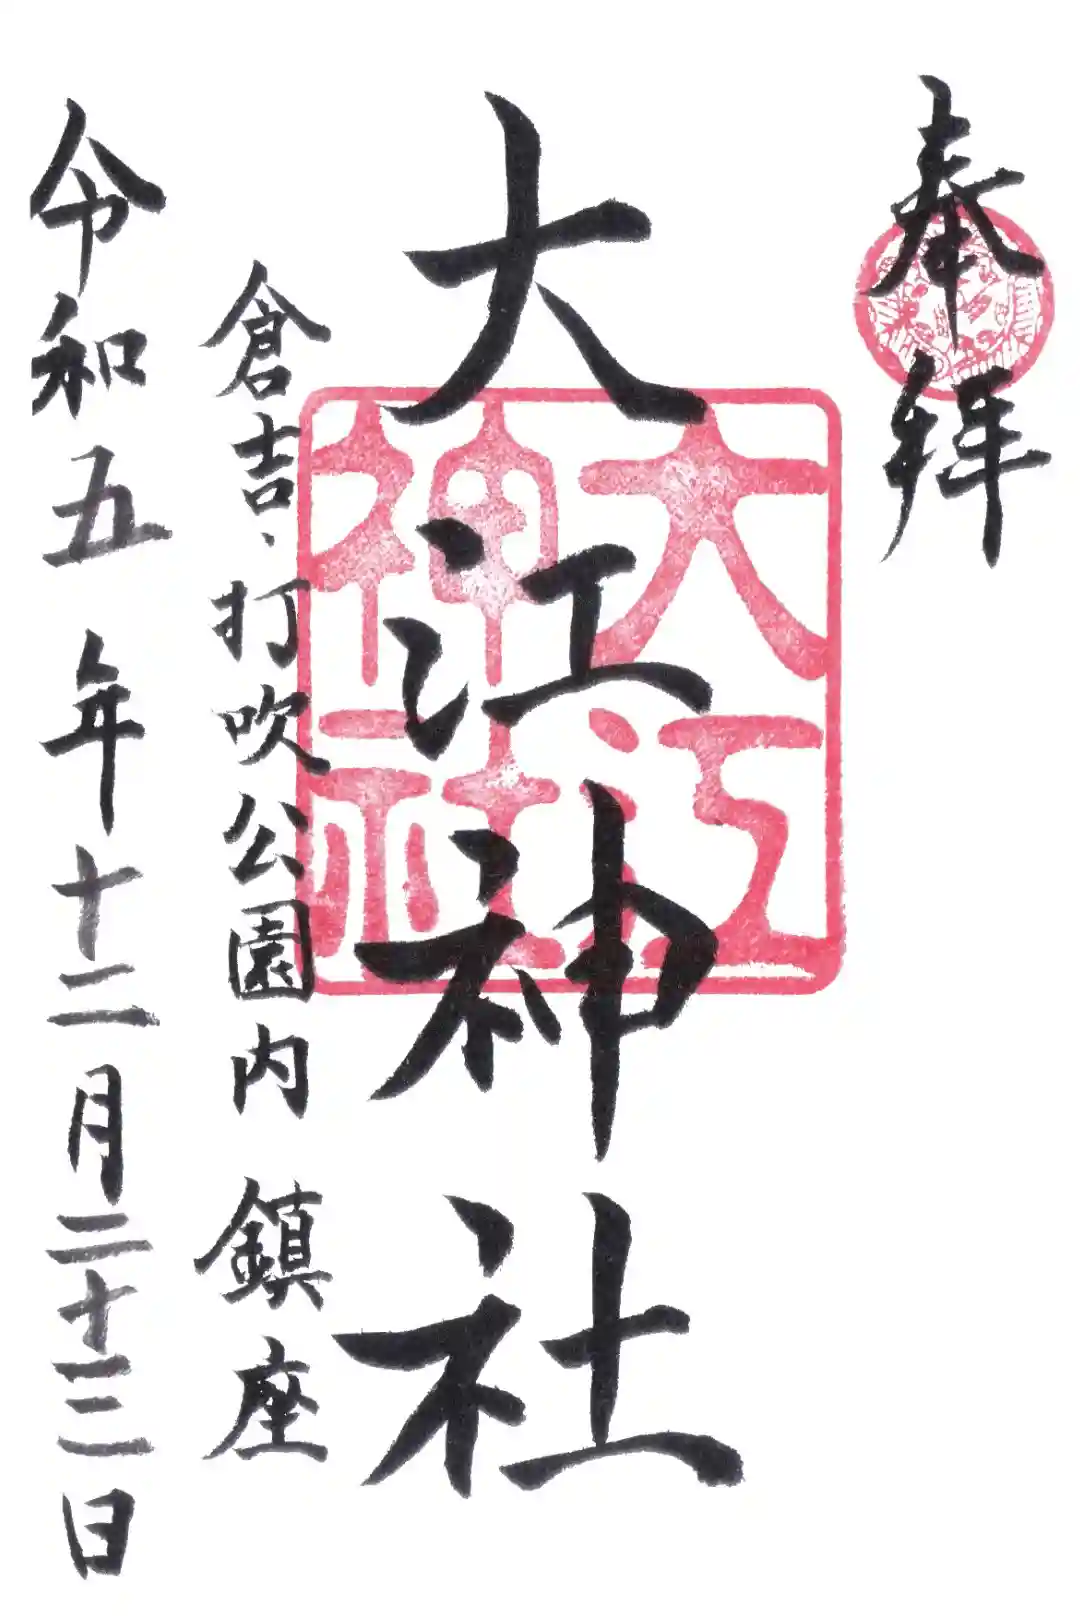 奉拝
大江神社
大江
神社
倉吉、打吹公園内 鎮座
令和五年十二月二十三日